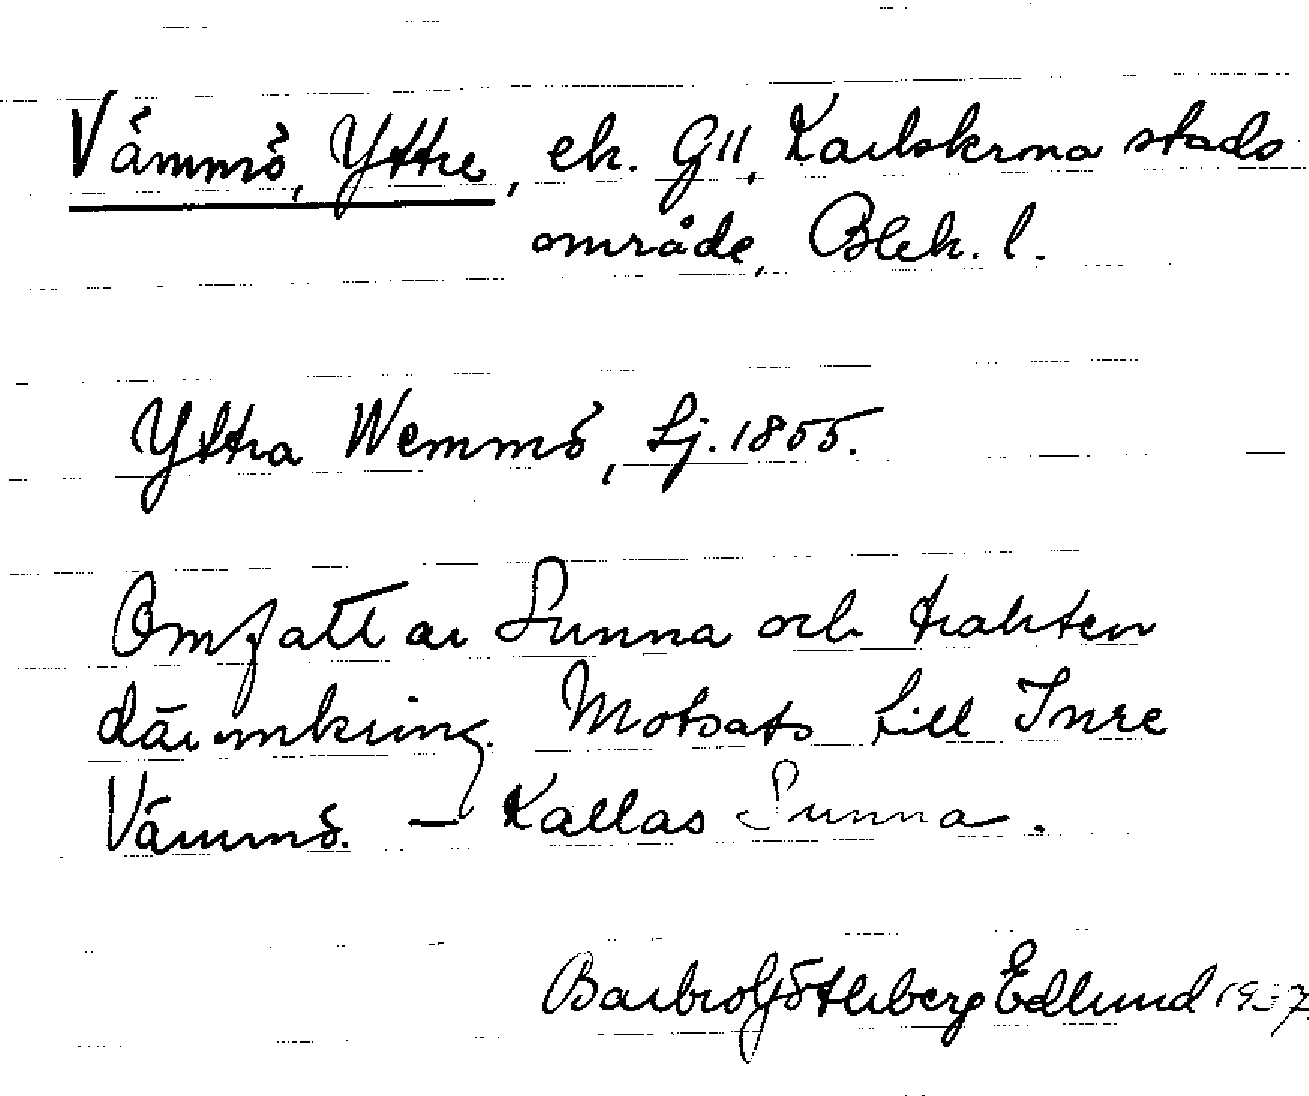 Vämmö, Yttre, ek. G11, Karlskrona stads
område, Blek. l.
Yttra Wemmö, Lj. 1855.
Omfattar Sunna och trakten
däromkring. Motsats till Inre
Vämmö. – Kallas Sunna.
Barbro Götherberg Edlund